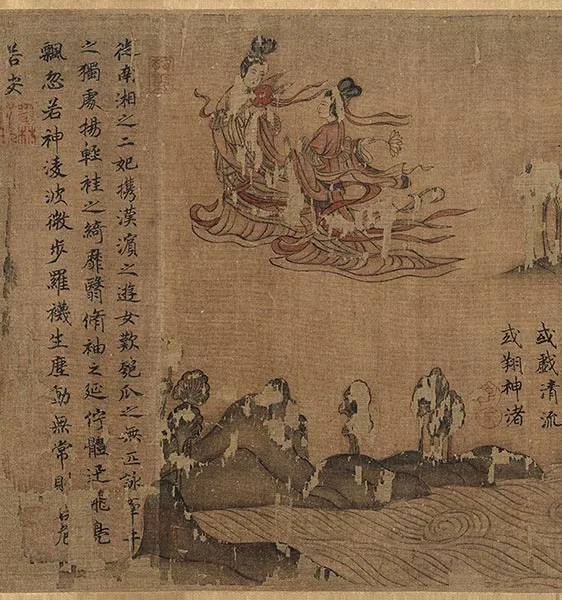 或戲清流
或翔神渚
從南湘之二妃攜漢濱之遊女歎匏瓜之無匹詠牽牛
之獨處揚輕袿之綺靡翳脩袖之延佇體迅飛鳧
飄忽若神淩波微步羅襪生塵動無常則若危
若安